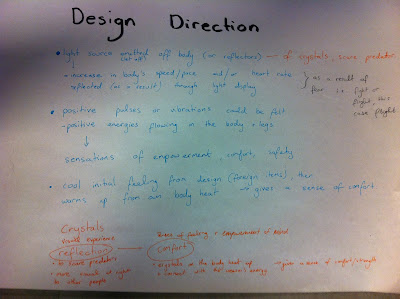 Design Direction
• light source emitted off body (or reflectors) → of crystals, scare predator
(let off)
→ increase in body's speed/pace and/or heart rate
reflected (as a result) through light display
} as a result of
fear i.e fight or
flight, this
case flight
• positive pulses or vibrations could be felt
- positive energies flowing in the body + legs
↓
sensations of empowerment, comfort, safety
• cool initial feeling from design (foreign lens), then
warms up from own body heat → gives a sense of comfort
Crystals
visual experience
reflection → comfort
sense of feeling + empowerment of mind
to scare predators
more visuals at night
to other people
→ crystals on the body heat up → gives a sense of comfort/strength
+ connect with the wearer's energy